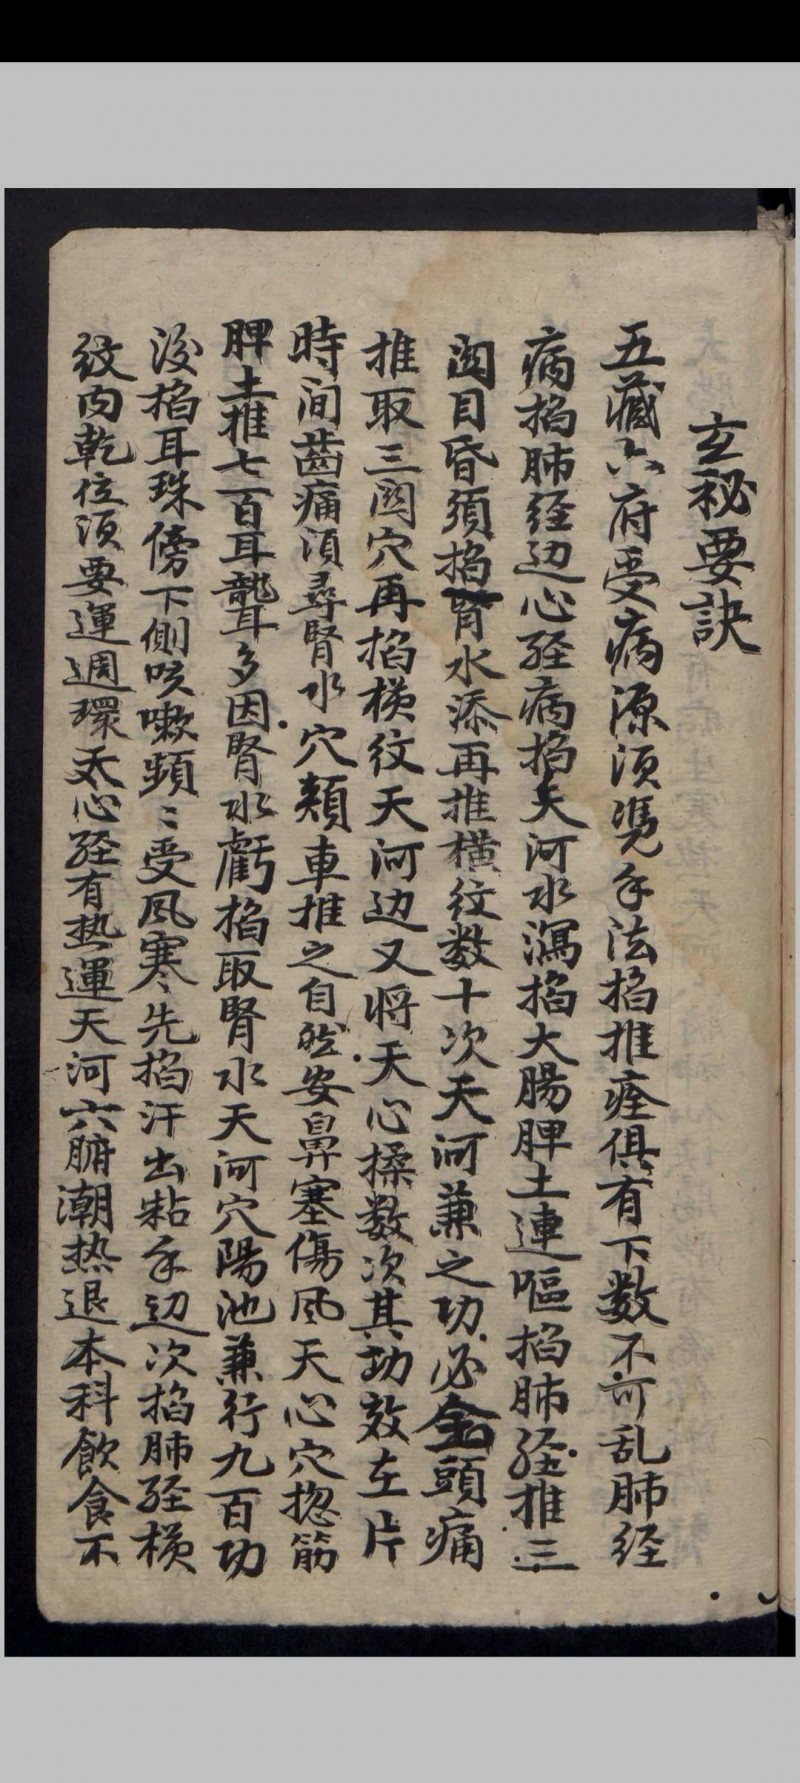 玄秘要訣
五藏六府受病源须凴手法掐推痊俱有下数不可乱肺经
病掐肺経边心经病掐天河水瀉掐大腸脾土連嘔掐肺经推三
関目昏须掐腎水添再推横纹数十次天河兼之功必全頭痛
推取三関穴再掐横纹天河边又将天心揉数次其功效在片
時间齒痛须尋腎水穴頰車推之自然安鼻塞傷风天心穴揔筋
脾土推七百耳聾多因腎水虧掐取腎水天河穴陽池兼行九百功
後掐耳珠傍下側咳嗽頻〻受风寒先掐汗出粘手边次掐肺经横
纹内乾位须要運週環天心经有热運天河六腑潮热退本科飲食不